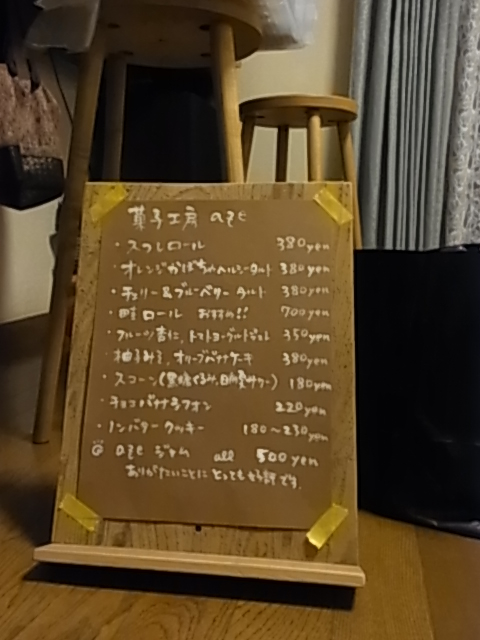 菓子工房 aze
・スフレロール 380yen
・オレンジかぼちゃヘルシータルト 380yen
・チェリー&ブルーベリータルト 380yen
・畦ロール おすすめ!! 700yen
・フルーツ杏仁、トマトヨーグルトジュレ 350yen
・柚子みそ、オリーブバナナケーキ 380yen
・スコーン(黒糖くるみ、 180yen
・チョコバナナシフォン 220yen
・ノンバタークッキー 180~230yen
aze ジャム all 500yen
ありがたいことにとっても好評です。